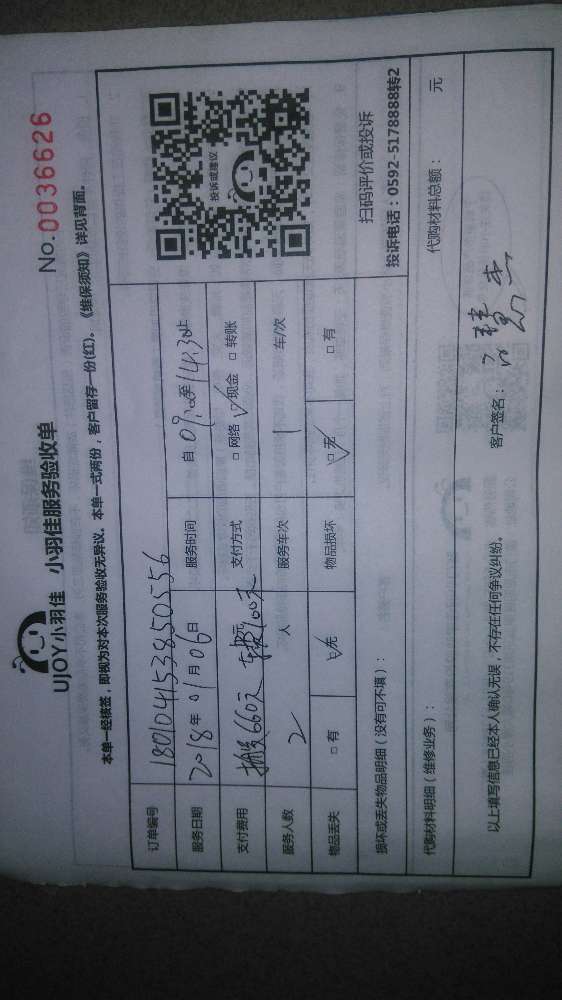 UJOY小羽佳 小羽佳服务验收单 No.0036626
本单一经核签，即视为对本次服务验收无异议。本单一式两份，客户留存一份(红)。《维保须知》详见背面。
订单编号 180104153850556
服务日期 2018年01月06日 服务时间 自09:00至14:30止
支付费用 搬资660元 车费100元 支付方式 □网络 ☑现金 □转账
服务人数 2人 服务车次 1 车/次
物品丢失 □有 ☑无 物品损坏 ☑无 □有
投诉或建议
扫码评价或投诉
投诉电话：0592-5178888转2
损坏或丢失物品明细（没有可不填）：
代购材料明细（维修业务）： 代购材料总额： 元
以上填写信息已经本人确认无误，不存在任何争议纠纷。 客户签名：